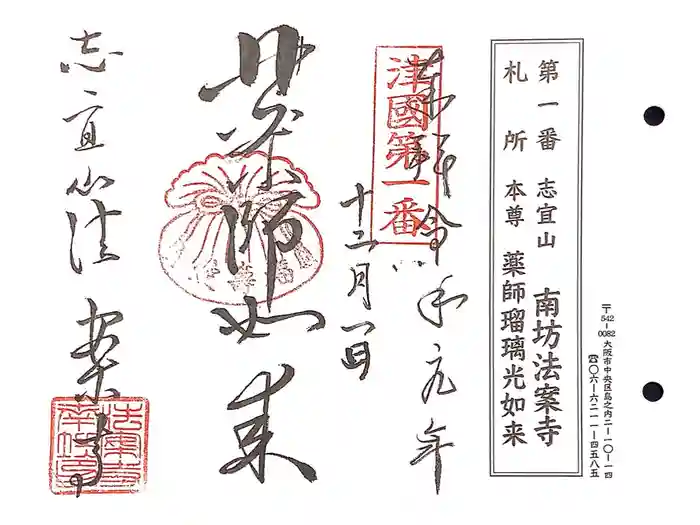 〒542-0082 大阪市中央区島之内二-一〇-一四
☎〇六-六二一一-四五八五
第一番 志宜山 南坊法案寺
札所 本尊 薬師瑠璃光如来
奉拝 令和元年
十二月一日
津國第一番
薬師如来
志宜山 法案寺